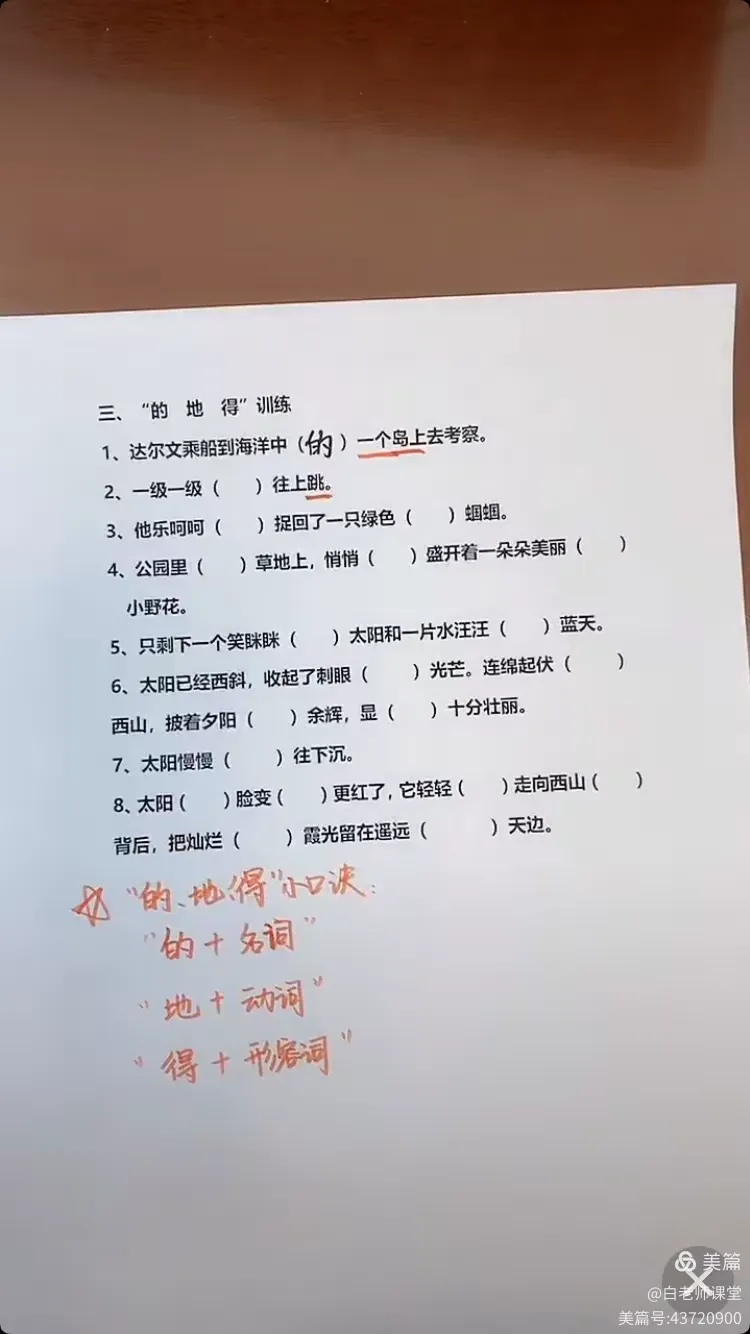 三、“的 地 得”训练
1、达尔文乘船到海洋中（的）一个岛上去考察。
2、一级一级（ ）往上跳。
3、他乐呵呵（ ）捉回了一只绿色（ ）蝈蝈。
4、公园里（ ）草地上，悄悄（ ）盛开着一朵朵美丽（ ）
小野花。
5、只剩下一个笑眯眯（ ）太阳和一片水汪汪（ ）蓝天。
6、太阳已经西斜，收起了刺眼（ ）光芒。连绵起伏（ ）
西山，披着夕阳（ ）余辉，显（ ）十分壮丽。
7、太阳慢慢（ ）往下沉。
8、太阳（ ）脸变（ ）更红了，它轻轻（ ）走向西山（ ）
背后，把灿烂（ ）霞光留在遥远（ ）天边。
“的、地、得”小口诀：
“的＋名词”
“地＋动词”
“得＋形容词”
美篇
@白老师课堂
美篇号:43720900